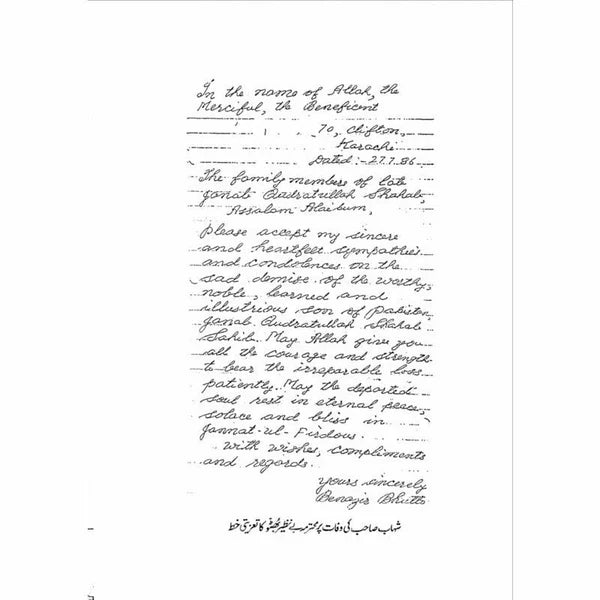 In the name of Allah, the
Merciful, the Beneficent
70, Clifton,
Karachi
Dated:- 27.7.86
The family members of late
Janab Qudratullah Shahab,
Assalam Alaikum,
Please accept my sincere
and heartfelt sympathies
and condolences on the
sad demise of the worthy,
noble, learned and
illustrious son of Pakistan,
Janab Qudratullah Shahab
Sahib. May Allah give you
all the courage and strength
to bear the irreparable loss
patiently. May the departed
soul rest in eternal peace,
solace and bliss in
Jannat-ul-Firdous.
With wishes, compliments
and regards.
Yours sincerely
Benazir Bhutto
شہاب صاحب کی وفات پر محترمہ بے نظیر بھٹو کا تعزیتی خط